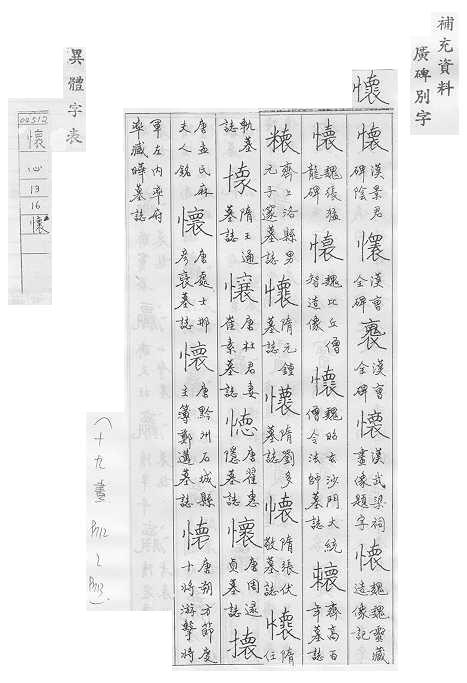 補充資料
廣碑別字
懷
懷 漢景君碑陰 懷 漢曹全碑 褱 漢曹全碑 懷 漢武梁祠畫像題字 懷 魏魏靈藏造像記
懷 魏張猛龍碑 懷 魏比丘僧智造像 懷 魏昭玄沙門大統僧令法師墓誌 懷 齊高百年墓誌
懷 齊上洛縣男元子邃墓誌 懷 隋元鍾墓誌 懷 隋劉多墓誌 懷 隋張伏敬墓誌 懷 隋任
軌墓誌 懷 隋王通墓誌 懷 唐杜君妻崔素墓誌 懷 唐翟惠隱墓誌 懷 唐周遠貞墓誌 懷
唐孟氏麻夫人銘 懷 唐處士邢彥裒墓誌 懷 唐黔州石城縣主簿鄭邁墓誌 懷 唐朔方節度十將游擊將
軍左內率府率臧曄墓誌
異體字表
04512
懷
心
13
16
懷
(十九畫 P.712~P.713)